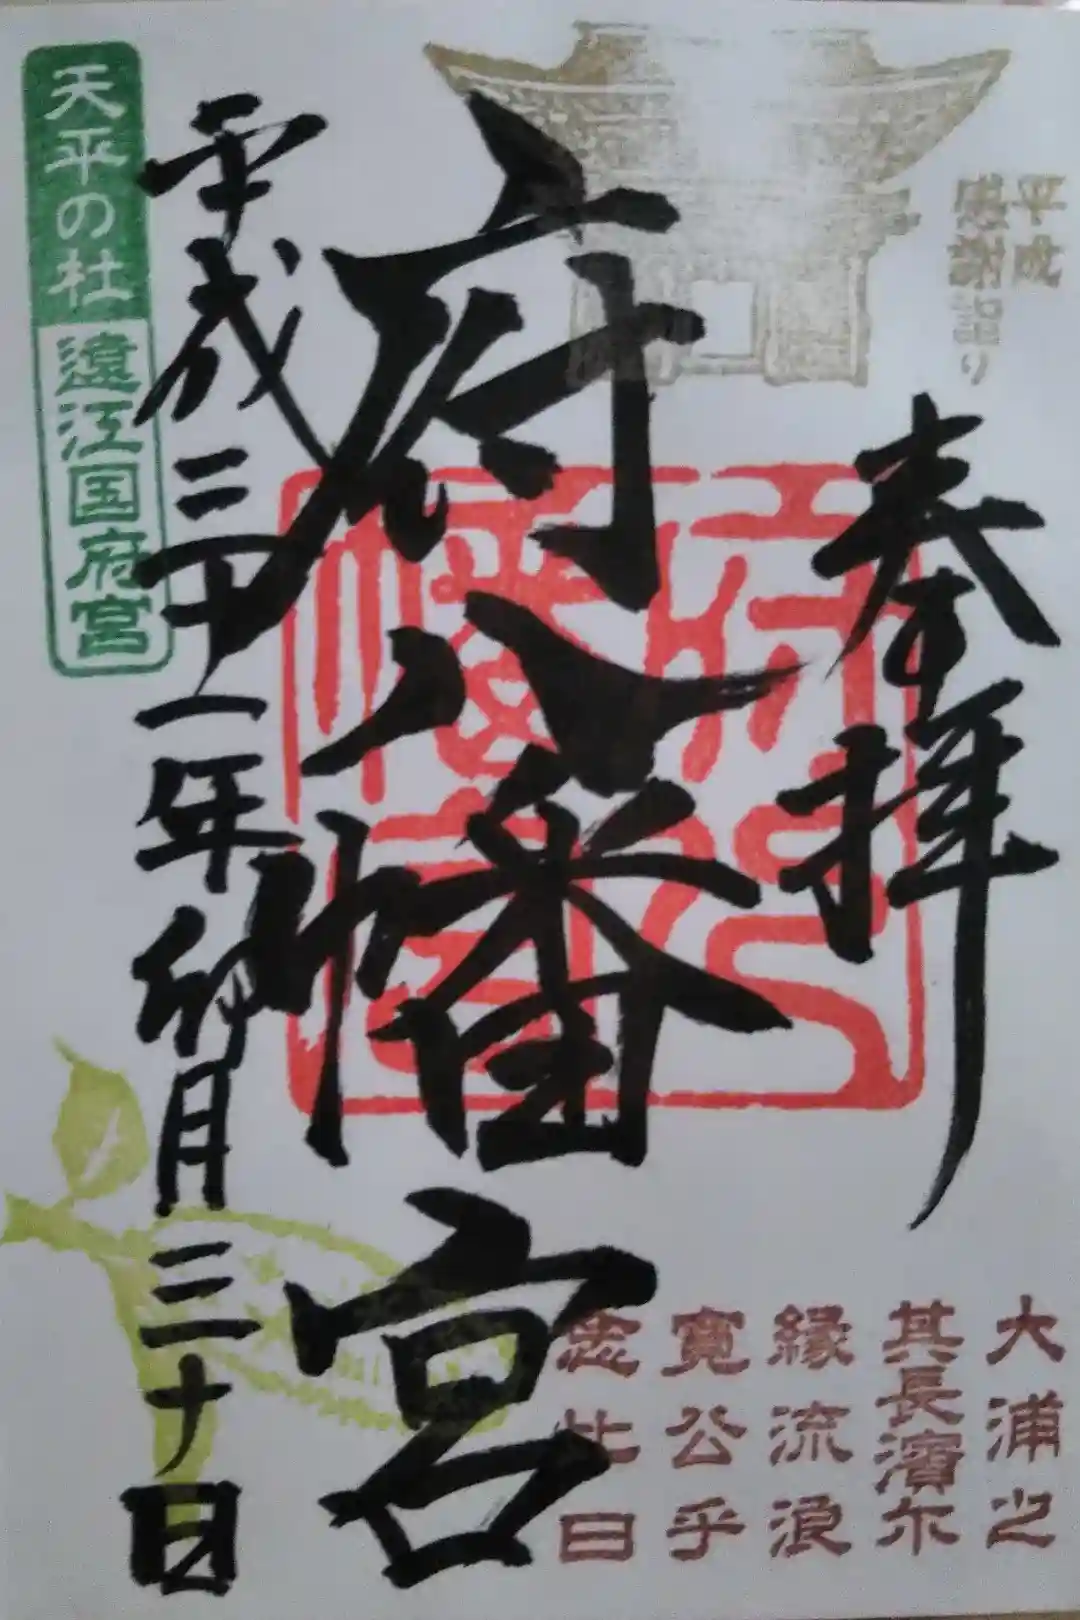 平成
感謝詣り
奉拝
府八幡宮
平成三十一年卯月三十日
天平の杜
遠江国府宮
大浦之
其長濱尓
縁流浪
寛公乎
念比日